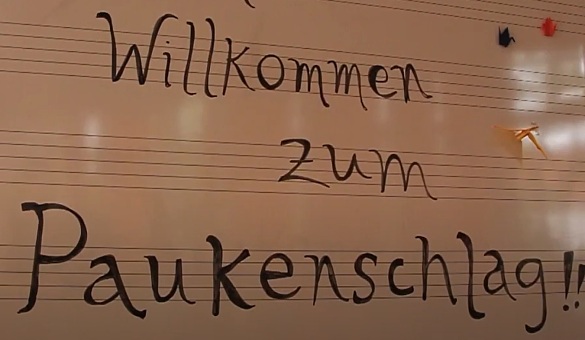 Willkommen
zum
Paukenschlag!!